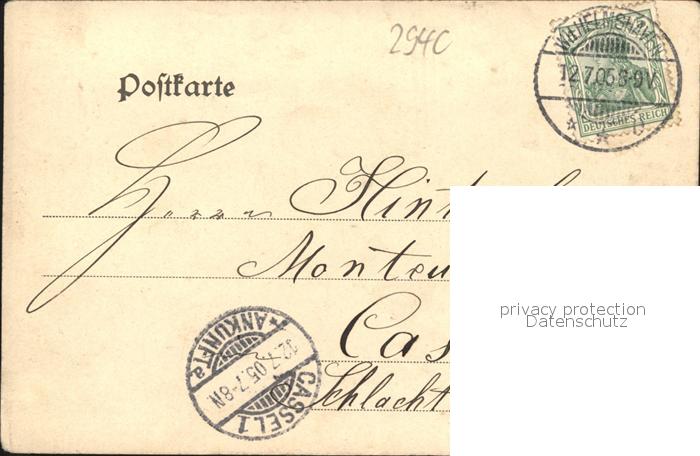 294C
WILHELMSHAVEN
12.7.05.8-9V.
* * b
DEUTSCHES REICH
Postkarte
Herrn Hint
Monteu
Cas
Schlacht
ANKUNFT a
12.7.05.7-8N.
CASSEL 1
privacy protection
Datenschutz